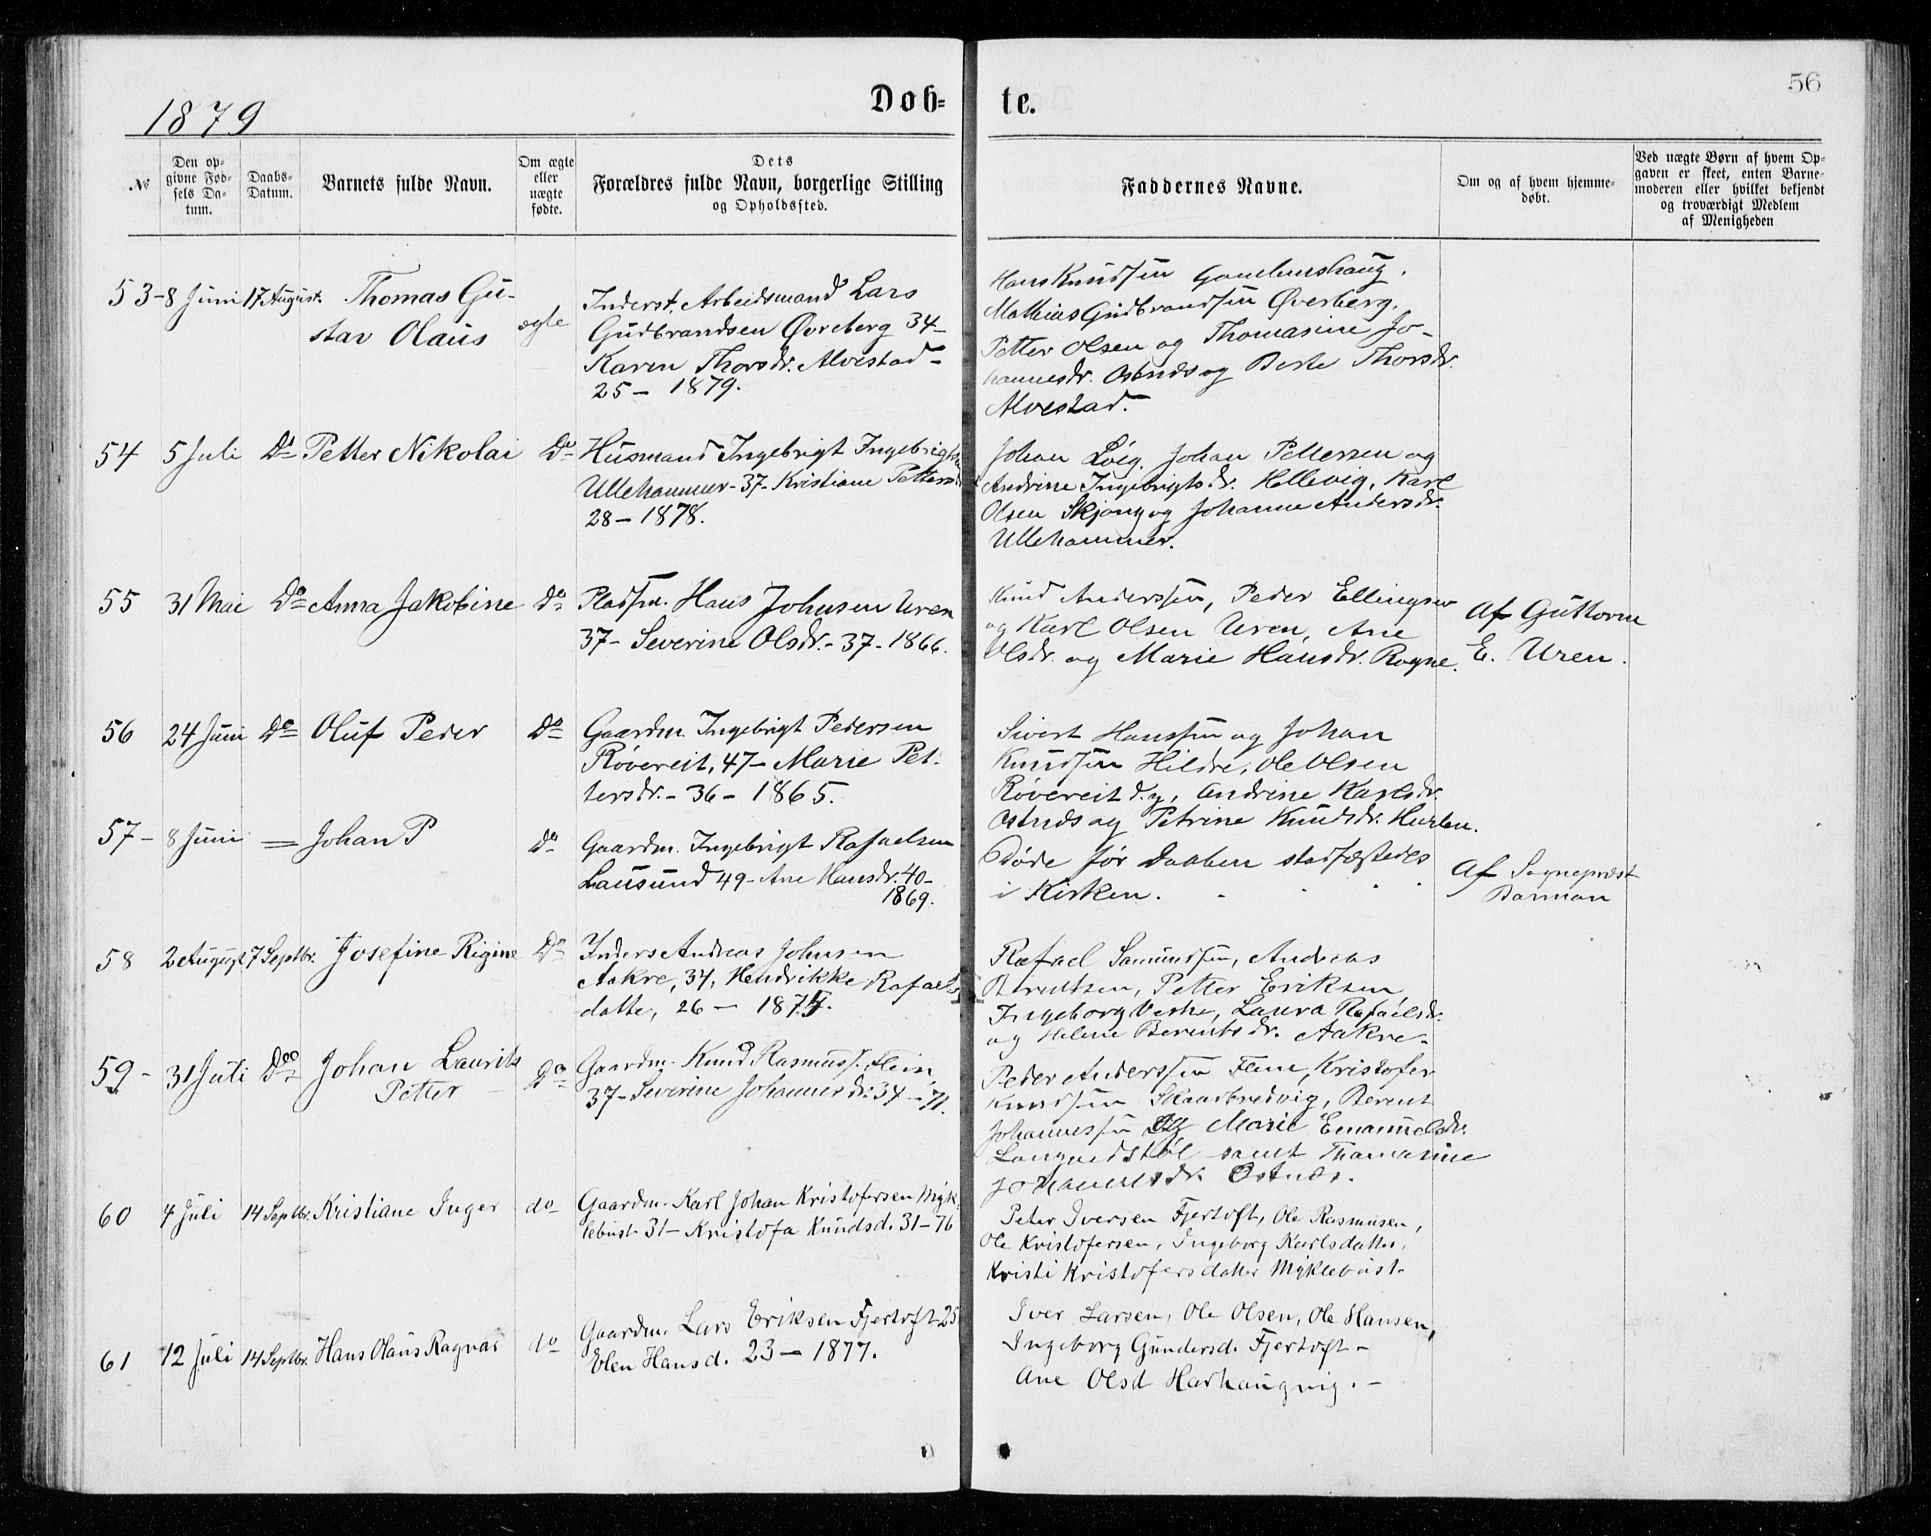 56
1879
Døb=
te.
№
Den op=
givne Fød=
sels Da=
tum.
Daabs=
Datum.
Barnets fulde Navn.
Om ægte
eller
uægte
fødte.
Dets
Forældres fulde Navn, borgerlige Stilling
og Opholdssted.
Faddernes Navne.
Om og af hvem hjemme=
døbt.
Ved uægte Børn af hvem Op=
gaven er skeet, enten Barne=
moderen eller hvilket bekjendt
og troværdigt Medlem
af Menigheden
53- 8 Juni 17 August. Thomas Gu-
stav Olaus
ægte
Inderst. Arbeidsmand Lars
Gudbrandsen Øvreberg 34-
Karen Thorsdr. Alvestad-
25- 1879.
Hans Knudsen
Mathias Gudbrandsen Øverberg.
Petter Olsen og Thomasine Jo-
hannesdr. Ostnds og Berte Thorsdr.
Alvestad.
54 5 Juli Do Petter Nikolai Do
Husmand Ingebrigt Ingebrigtsen
Ullehammer- 37- Kristiane Pettersdr
28- 1878.
Johan Løig. Johan Pettersen og
Andrine Ingebrigtsdr. Hellevig, Karl
Olsen Skjong og Johanne Andersdr.
Ullehammer.
55 31 Mai Do Anna Jakobine Do
Pladsm. Hans Johnsen Uren
37- Severine Olsdr.- 37- 1866.
Knud Anderssen, Peder Ellingsen
og Karl Olsen Uren, Ane
Olsdr. og Marie Hansdr. Rogne.
Af Guttorm
E. Uren.
56 24 Juni Do Oluf Peder Do
Gaardm. Ingebrigt Pedersen
Røvereit, 47- Marie Pet-
tersdr.- 36- 1865.
Sivert Hanssen og Johan
Knudssen Hildre, Ole Olsen
Røvereit d.y, Andrine Karlsdr.
Ostnds og Petrine Knudsdr. Hurlen.
57- 8 Juni = Johan P do
Gaardm. Ingebrigt Rafaelsen
Lausund 49- Ane Hansdr. 40-
1869.
Døde før Daaben stadfæstedes
i Kirken.
Af Sognepræst
Barman
58 2 August 7 Septbr. Josefine Rigine Do
Inders Andreas Johnsen
Aakre, 34, Hendrikke Rafaels
datte, 26- 1874.
Rafael Samundsen, Andreas
Berntsen, Petter Eriksen
Ingeborg Vestre, Laura Rafaelsdr.
og Helene Berentsdr. Aakre-
59- 31 Juli Do Johan Laurits
Petter
Do
Gaardm. Knud Rasmuss. Flem,
37- Severine Johannesdr. 34-71.
Peder Anderssen Flem, Kristofer
Knudssen Skaarbredvig, Berent
Johannessen og Marie Emanuelsdr.
Longvedstøl samt Thomasine
Johannesdr. Ostnds.
60 4 Juli 14 Septbr. Kristiane Inger do
Gaardm. Karl Johan Kristofersen Myk
lebust 31- Kristofa Knudsd. 31-76
Peter Iversen Fjertoft, Ole Rasmusen,
Ole Kristofersen, Ingeborg Karlsdatter,
Kristi Kristofersdatter Myklebust-
61 12 Juli 14 Septbr. Hans Olaus Ragnar do
Gaardm. Lars Eriksen Fjertoft 25
Elen Hansd. 23- 1877.
Iver Larsen, Ole Olsen, Ole Hansen,
Ingeborg Gundersd. Fjertoft-
Ane Olsd Harhaugvig.-